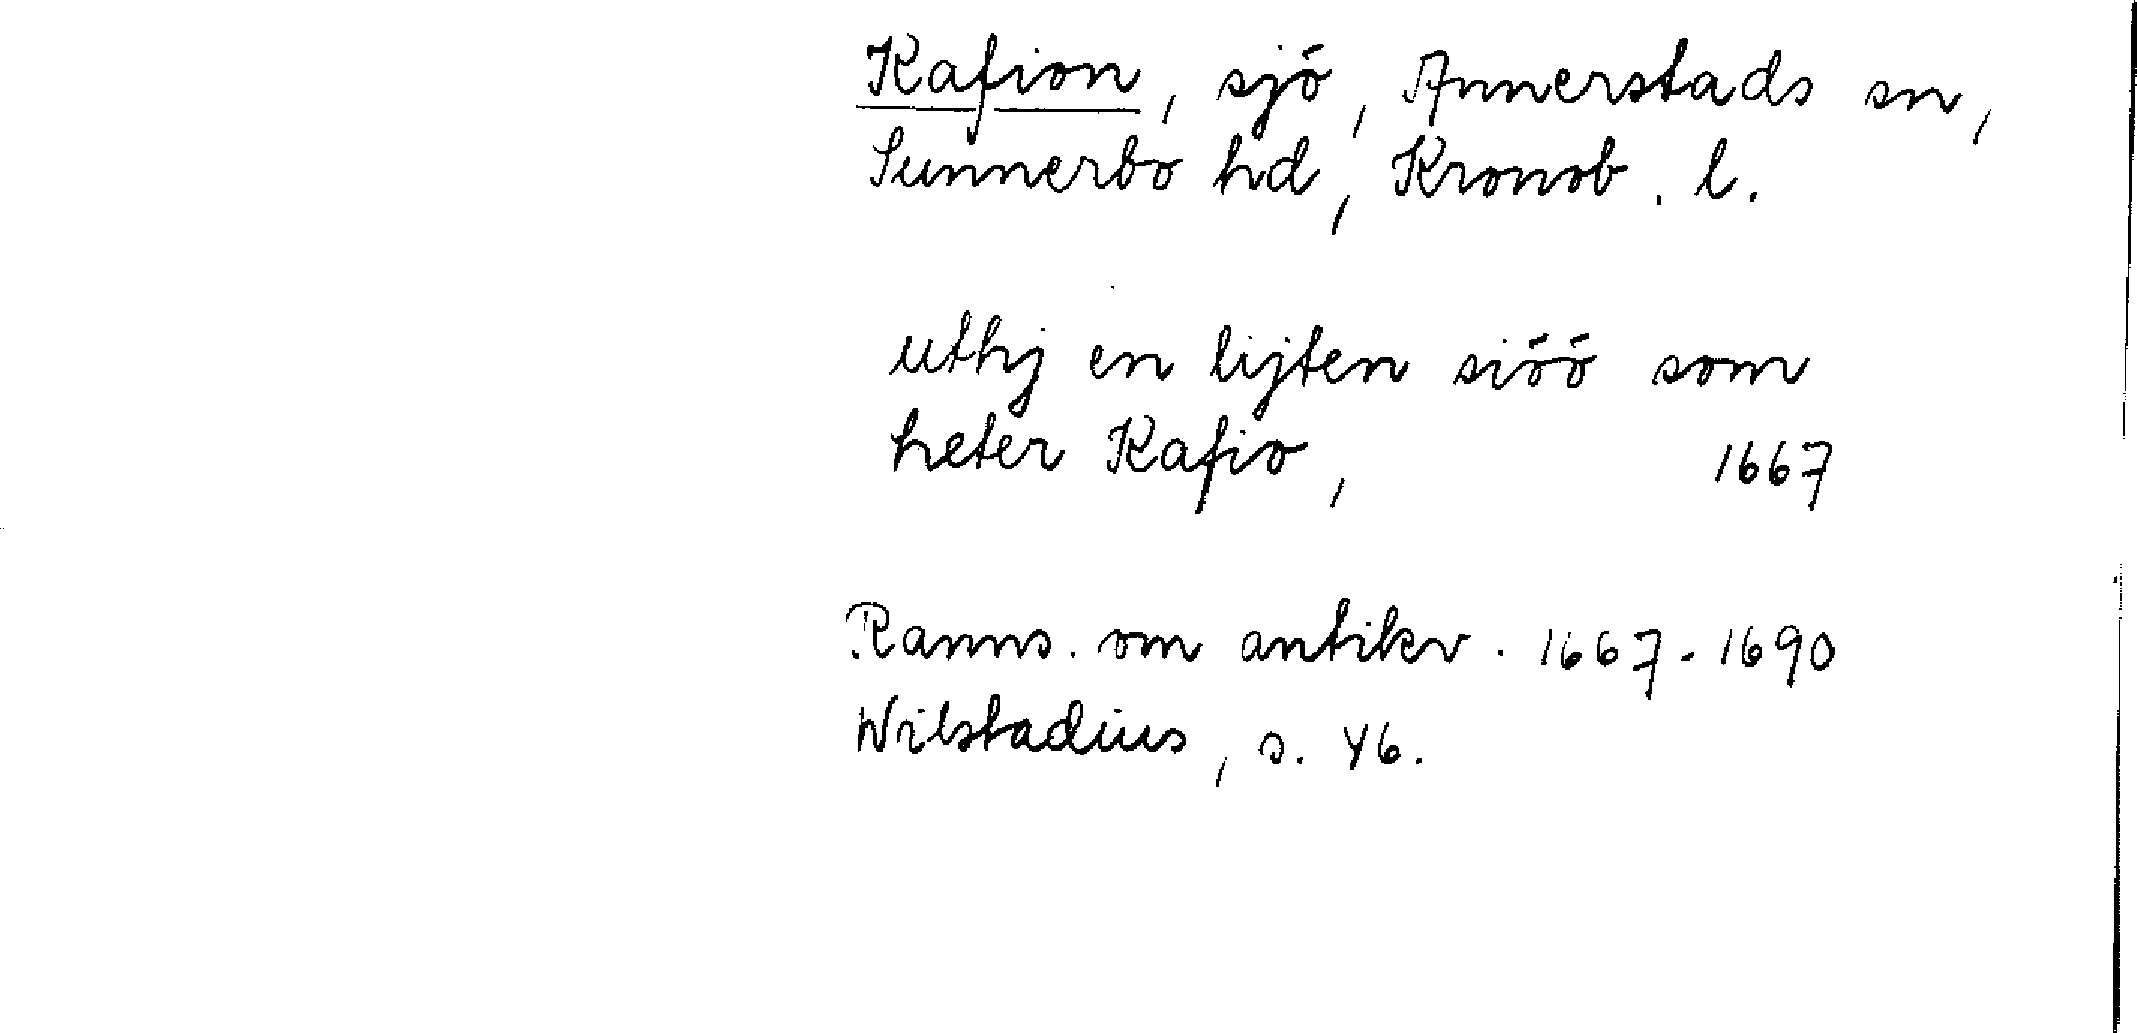 Kafion, sjö, Annerstads sn,
Sunnerbo hd, Kronob. l.
uthj en lijten siöö som
heter Kafio, 1667
Ranns. om antikv. 1667-1690
Wilstadius, s. 46.